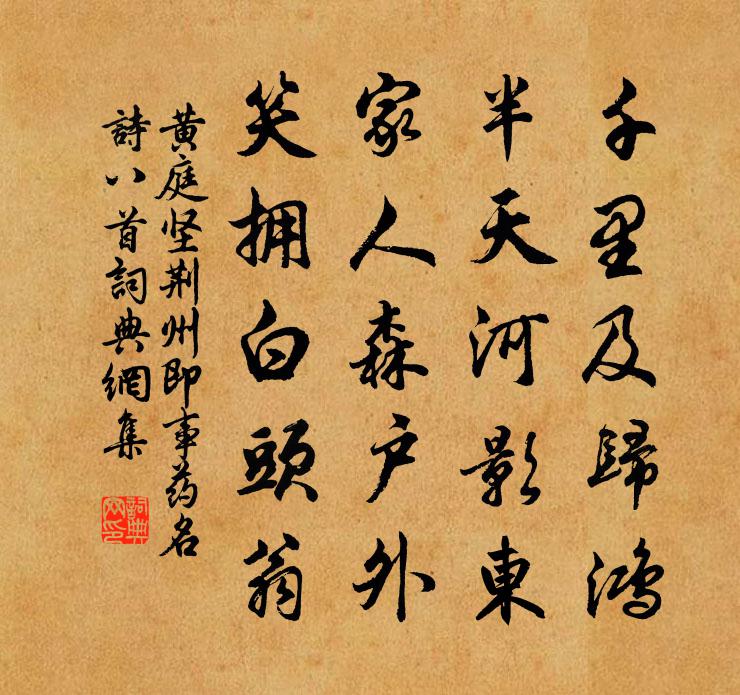 千里及歸鴻
半天河影東
家人森户外
笑拥白頭翁
黄庭坚荆州即事药名
詩八首詞典網集
詞典网印